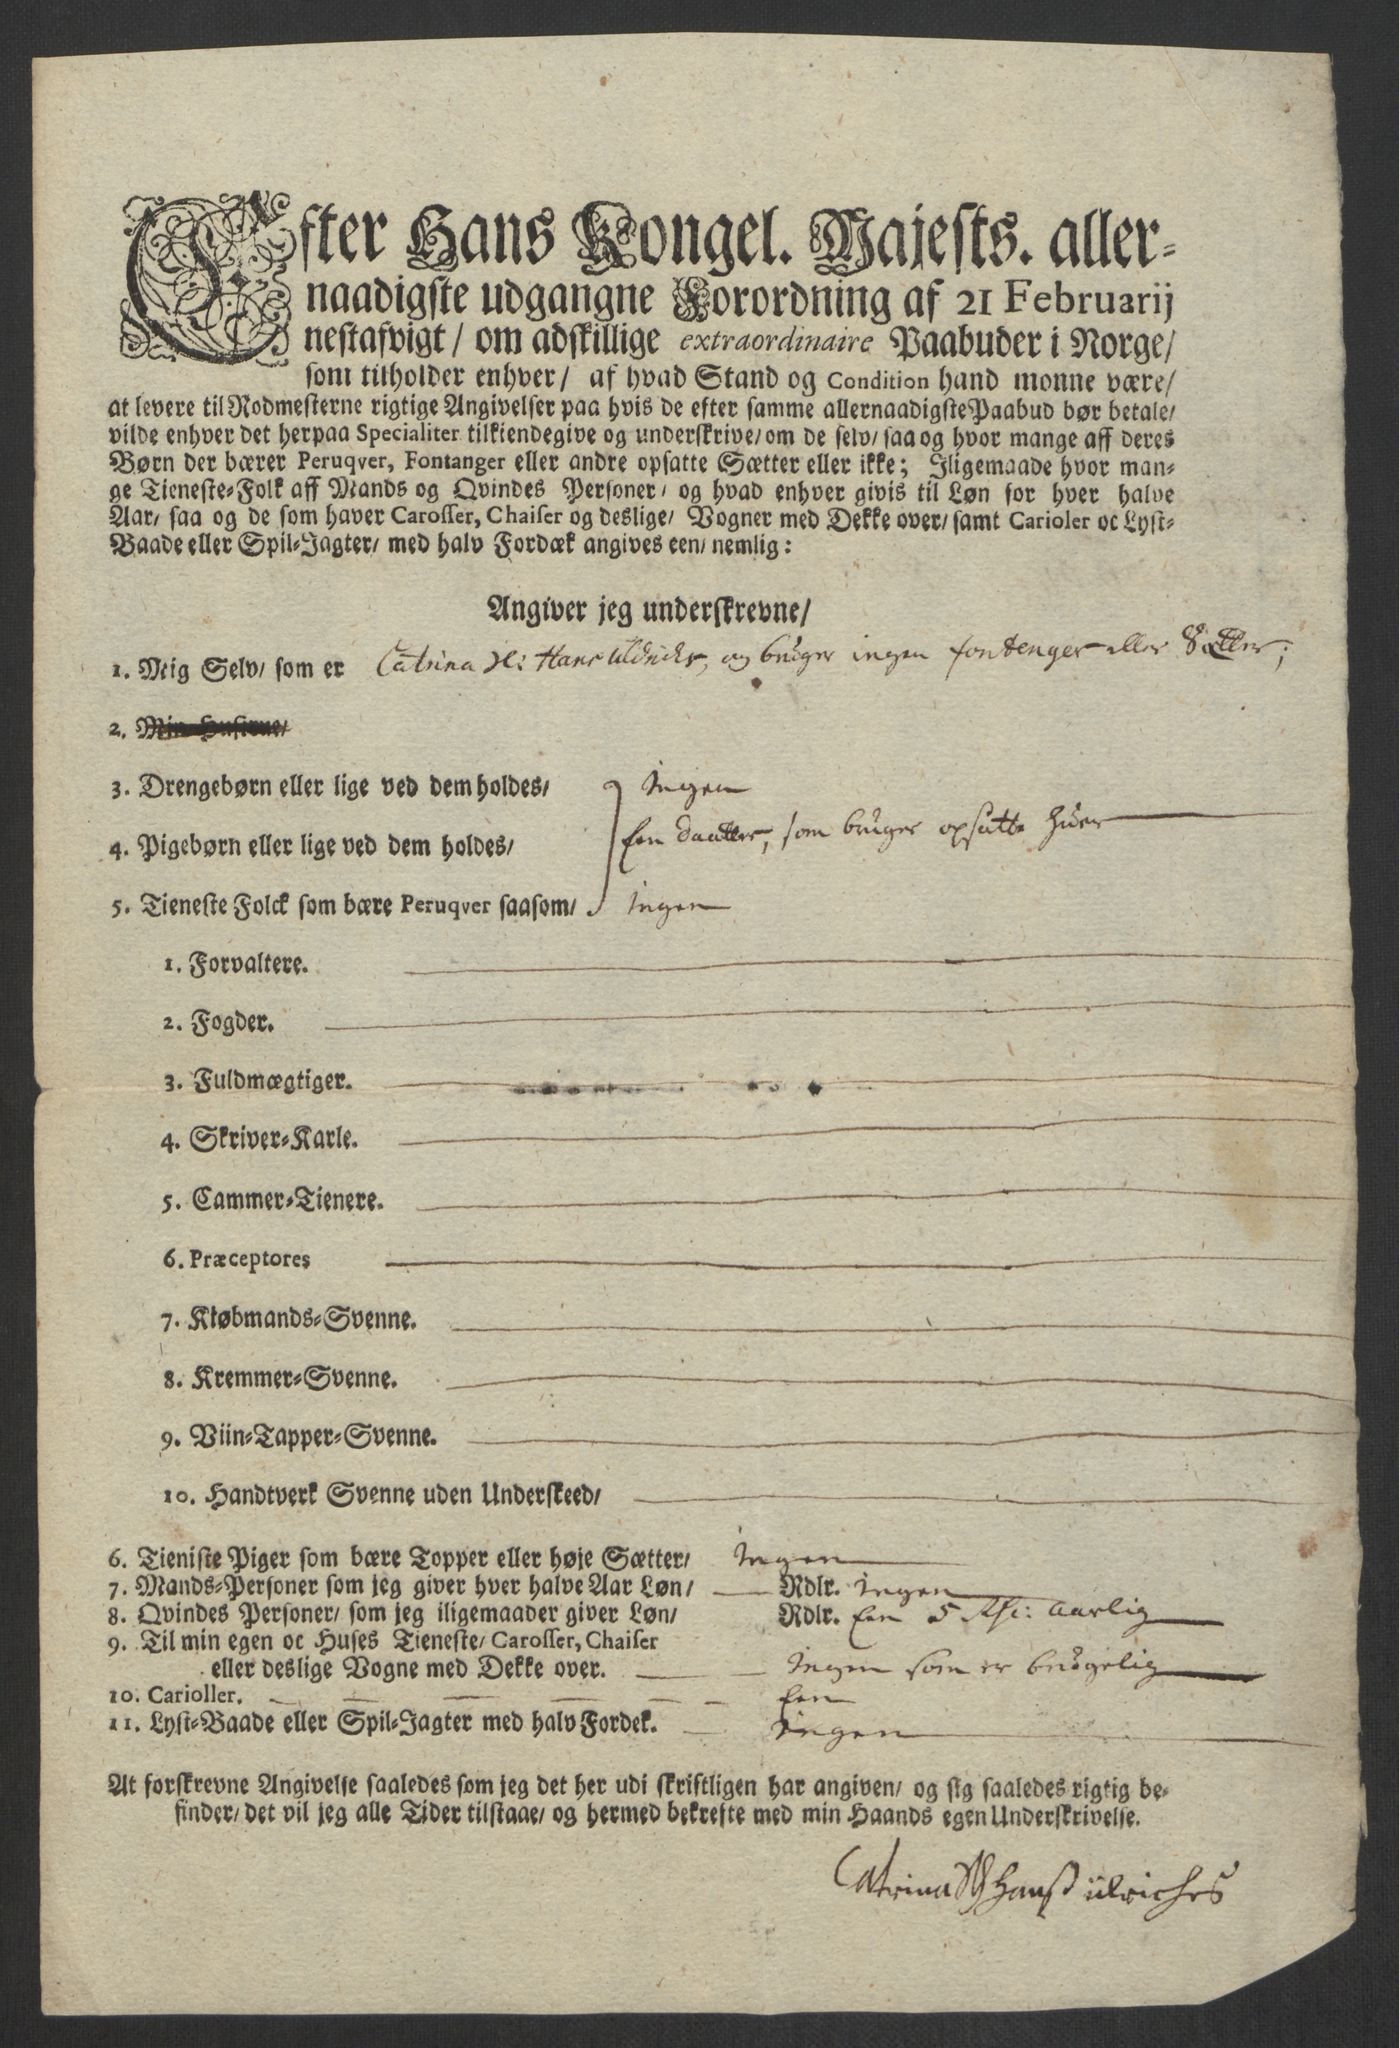 Efter Hans Kongel. Majests. aller-
naadigste udgangne Forordning af 21 Februarij
nestafvigt / om adskillige extraordinaire Paabuder i Norge /
som tilholder enhver / af hvad Stand og Condition hand monne være /
at levere til Rodmesterne rigtige Angivelser paa hvis de efter samme allernaadigste Paabud bør betale /
vilde enhver det herpaa Specialiter tilkiendegive og underskrive / om de selv / saa og hvor mange aff deres
Børn der bærer Peruqver, Fontanger eller andre opsatte Sætter eller ikke; Iligemaade hvor man-
ge Tieneste-Folk aff Mands og Qvindes Personer / og hvad enhver givis til Løn for hver halve
Aar / saa og de som haver Carosser, Chaiser og deslige / Vogner med Dekke over / samt Carioler oc Lyst-
Baade eller Spil-Jagter / med halv Fordæk angives een / nemlig:
Angiver jeg underskrevne /
1. Mig Selv / som er Catrina og bruger ingen fontenger eller Sætter;
2. Min Hustrue /
3. Drengebørn eller lige ved dem holdes / Ingen
4. Pigebørn eller lige ved dem holdes / Een daatter, som bruger opsatte Huer
5. Tieneste Folck som bære Peruqver saasom / Ingen
1. Forvaltere.
2. Fogder.
3. Fuldmægtiger.
4. Skriver-Karle.
5. Cammer-Tienere.
6. Præceptores
7. Kiøbmands-Svenne.
8. Kremmer-Svenne.
9. Viin-Tapper-Svenne.
10. Handtverk Svenne uden Underskeed /
6. Tieniste Piger som bære Topper eller høje Sætter / Ingen
7. Mands-Personer som jeg giver hver halve Aar Løn / Rdlr. Ingen
8. Qvindes Personer / som jeg iligemaader giver Løn / Rdlr. Een 5 Aarlig
9. Til min egen oc Huses Tieneste / Carosser, Chaiser
eller deslige Vogne med Dekke over. Ingen som er brugelig
10. Carioller. Een
11. Lyst-Baade eller Spil-Jagter med halv Fordek. Ingen
At forskrevne Angivelse saaledes som jeg det her udi skriftligen har angiven / og sig saaledes rigtig be-
finder / det vil jeg alle Tider tilstaae / og hermed bekrefte med min Haands egen Underskrivelse.
Catrina Hanß ülriches